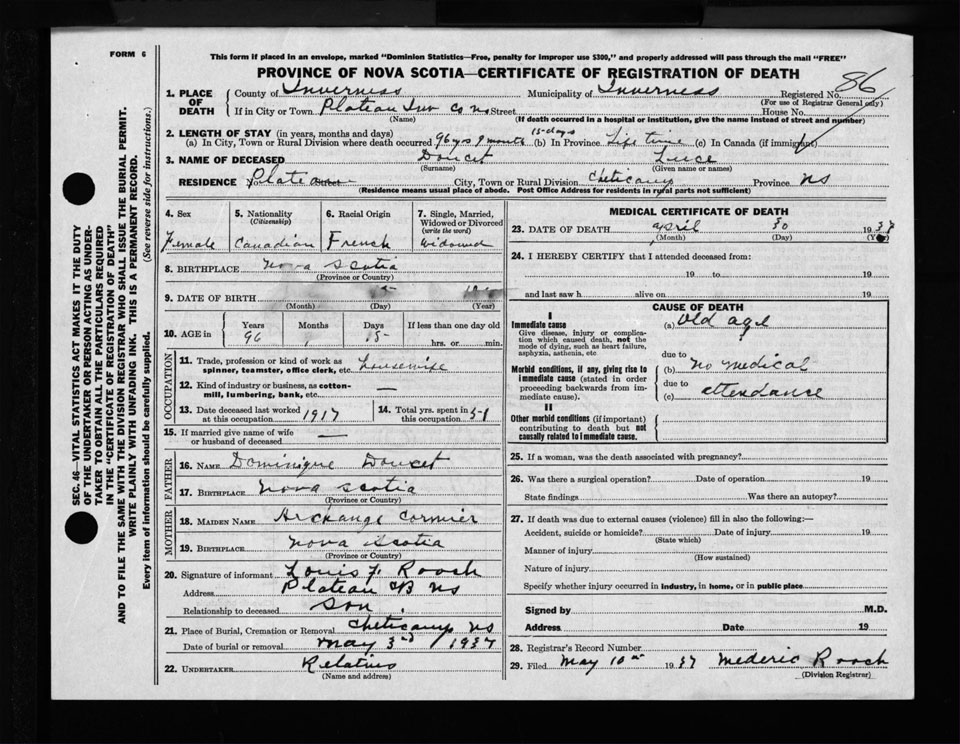 FORM 6
This form if placed in an envelope, marked "Dominion Statistics—Free, penalty for improper use $300," and properly addressed will pass through the mail "FREE"
PROVINCE OF NOVA SCOTIA—CERTIFICATE OF REGISTRATION OF DEATH
86
SEC. 46—VITAL STATISTICS ACT MAKES IT THE DUTY
OF THE UNDERTAKER OR PERSON ACTING AS UNDER-
TAKER TO OBTAIN ALL THE PARTICULARS REQUIRED
IN THE "CERTIFICATE OF REGISTRATION OF DEATH"
AND TO FILE THE SAME WITH THE DIVISION REGISTRAR WHO SHALL ISSUE THE BURIAL PERMIT.
WRITE PLAINLY WITH UNFADING INK. THIS IS A PERMANENT RECORD.
Every item of information should be carefully supplied. (See reverse side for instructions.)
1. PLACE OF DEATH
County of Inverness Municipality of Inverness Registered No.
(For use of Registrar General only)
If in City or Town Plateau Inv Co NS Street House No.
(Name) (If death occurred in a hospital or institution, give the name instead of street and number)
2. LENGTH OF STAY (in years, months and days)
(a) In City, Town or Rural Division where death occurred 96 yrs 9 months 15-days (b) In Province Life time (c) In Canada (if immigrant)
3. NAME OF DECEASED Doucet Luce
(Surname) (Given name or names)
RESIDENCE Plateau City, Town or Rural Division Cheticamp Province NS
(Residence means usual place of abode. Post Office Address for residents in rural parts not sufficient)
4. Sex
Female
5. Nationality
(Citizenship)
Canadian
6. Racial Origin
French
7. Single, Married, Widowed or Divorced
(write the word)
Widowed
8. BIRTHPLACE Nova Scotia
(Province or Country)
9. DATE OF BIRTH
(Month) (Day) (Year)
10. AGE in Years Months Days If less than one day old
96 15 hrs. or min.
OCCUPATION
11. Trade, profession or kind of work as
spinner, teamster, office clerk, etc. Housewife
12. Kind of industry or business, as cotton-
mill, lumbering, bank, etc. —
13. Date deceased last worked
at this occupation 1917
14. Total yrs. spent in
this occupation 51
15. If married give name of wife
or husband of deceased —
FATHER
16. NAME Dominique Doucet
17. BIRTHPLACE Nova Scotia
(Province or Country)
MOTHER
18. MAIDEN NAME Archange Cormier
19. BIRTHPLACE Nova Scotia
(Province or Country)
20. Signature of informant Louis F. Roach
Address Plateau CB NS
Relationship to deceased Son
21. Place of Burial, Cremation or Removal Cheticamp NS
Date of burial or removal May 3rd 1937
22. UNDERTAKER Relatives
(Name and address)
MEDICAL CERTIFICATE OF DEATH
23. DATE OF DEATH April 30 1937
(Month) (Day) (Year)
24. I HEREBY CERTIFY that I attended deceased from:
19 to 19
and last saw h alive on 19
CAUSE OF DEATH
I
Immediate cause
Give disease, injury or complica-
tion which caused death, not the
mode of dying, such as heart failure,
asphyxia, asthenia, etc
(a) Old age
due to
Morbid conditions, if any, giving rise to
immediate cause (stated in order
proceeding backwards from im-
mediate cause).
(b) No medical
due to
(c) attendance
II
Other morbid conditions (if important)
contributing to death but not
causally related to immediate cause.
25. If a woman, was the death associated with pregnancy?
26. Was there a surgical operation? Date of operation 19
State findings Was there an autopsy?
27. If death was due to external causes (violence) fill in also the following:—
Accident, suicide or homicide? Date of injury 19
(State which)
Manner of injury
(How sustained)
Nature of injury
Specify whether injury occurred in industry, in home, or in public place
Signed by M.D.
Address Date 19
28. Registrar's Record Number
29. Filed May 10th 1937 Mederic Roach
(Division Registrar)